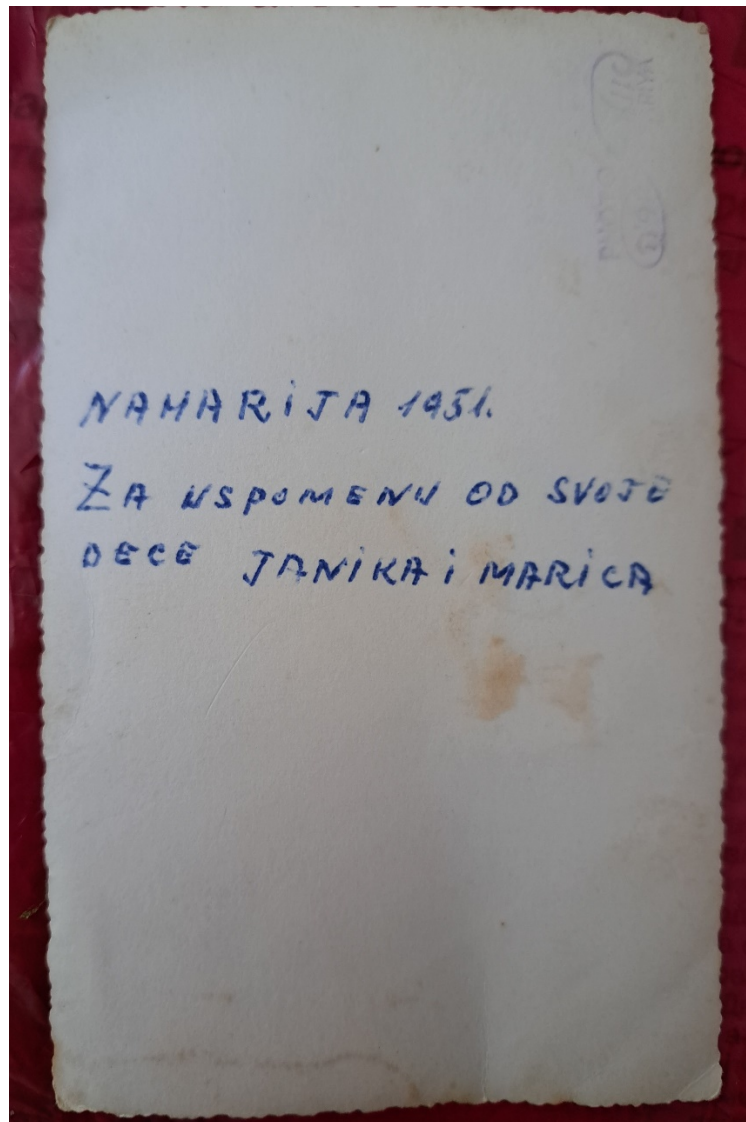 NAHARIJA 1951.
ZA USPOMENU OD SVOJE
DECE JANIKA i MARICA